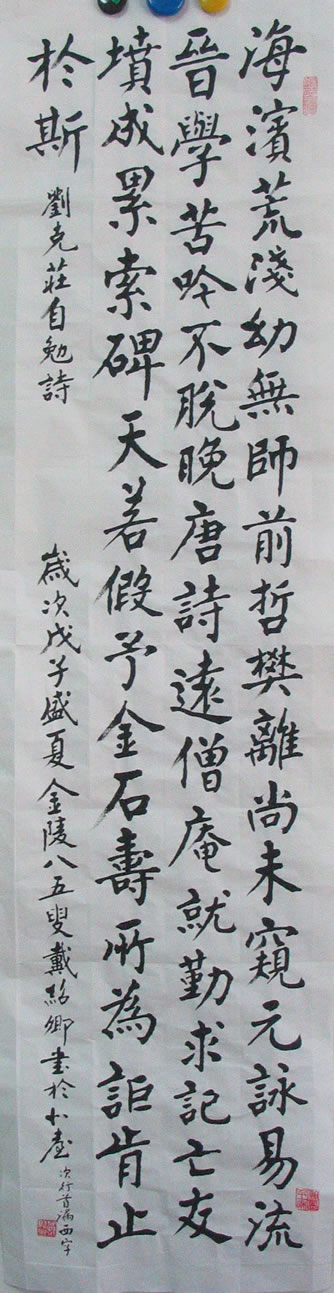 海濱荒淺幼無師前哲樊離尚未窺元詠易流
晉學苦吟不脫晚唐詩遠僧庵就勤求記亡友
墳成累索碑天若假予金石壽所為詎肯止
於斯
劉克莊自勉詩
歲次戊子盛夏金陵八五叟戴紹卿書於小臺
次行首漏西字